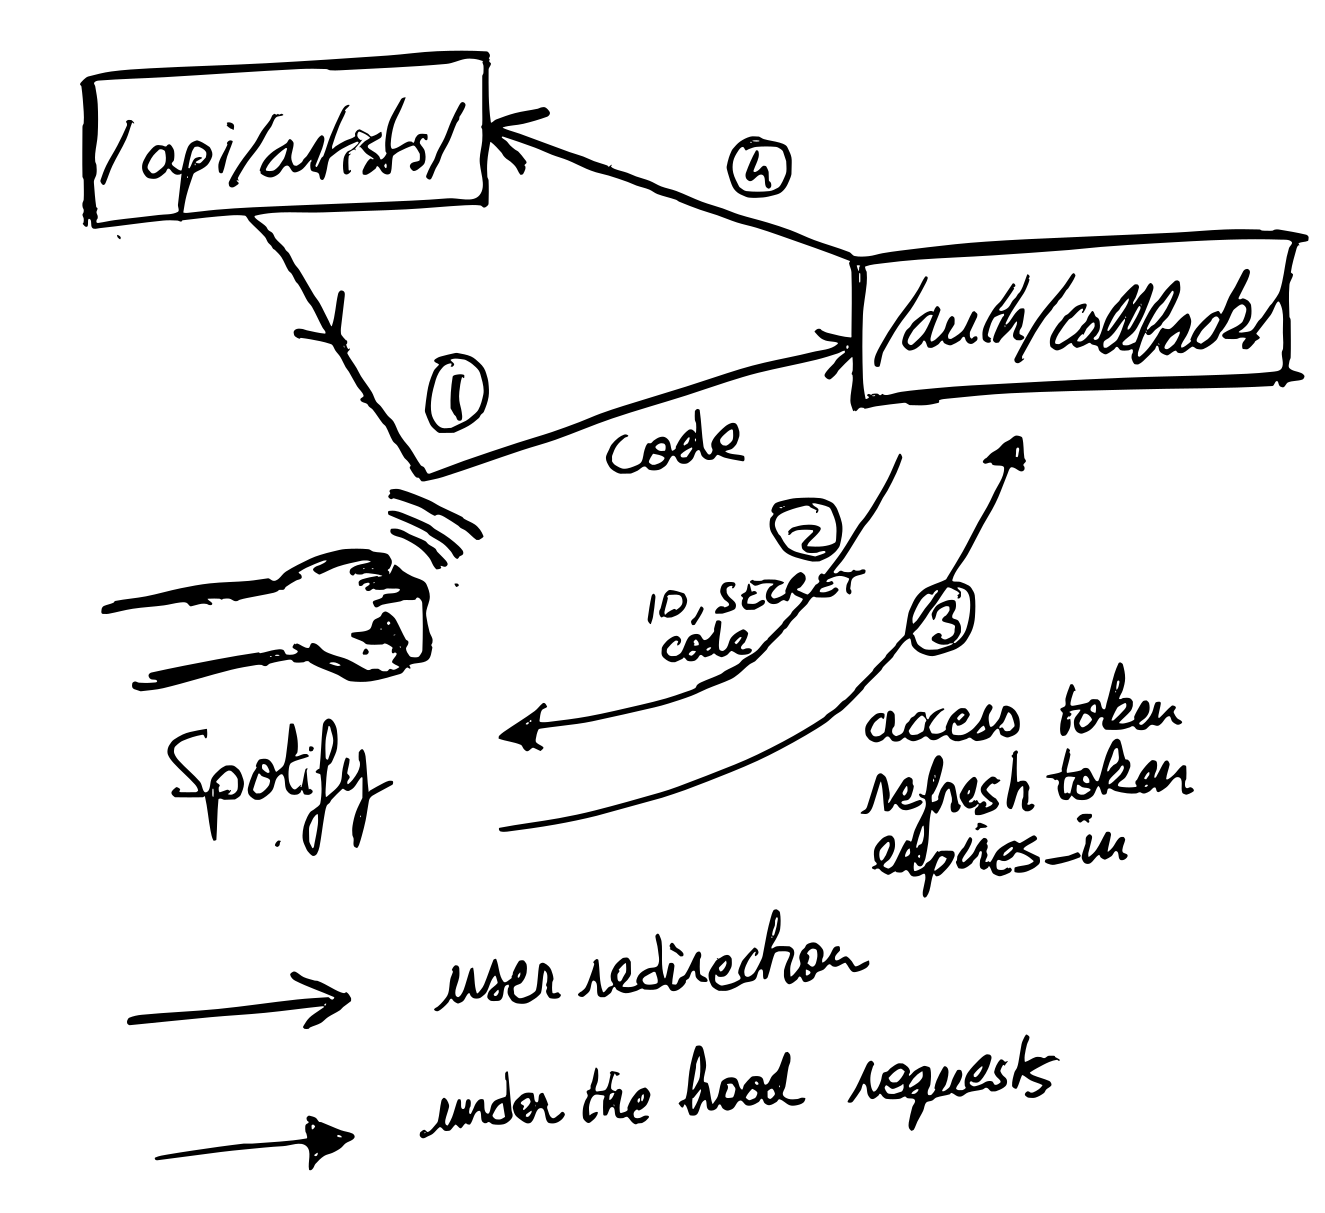 /api/artists/
4
/auth/callback/
1
code
2
ID, SECRET
code
3
access token
refresh token
expires_in
Spotify
user redirection
under the hood requests